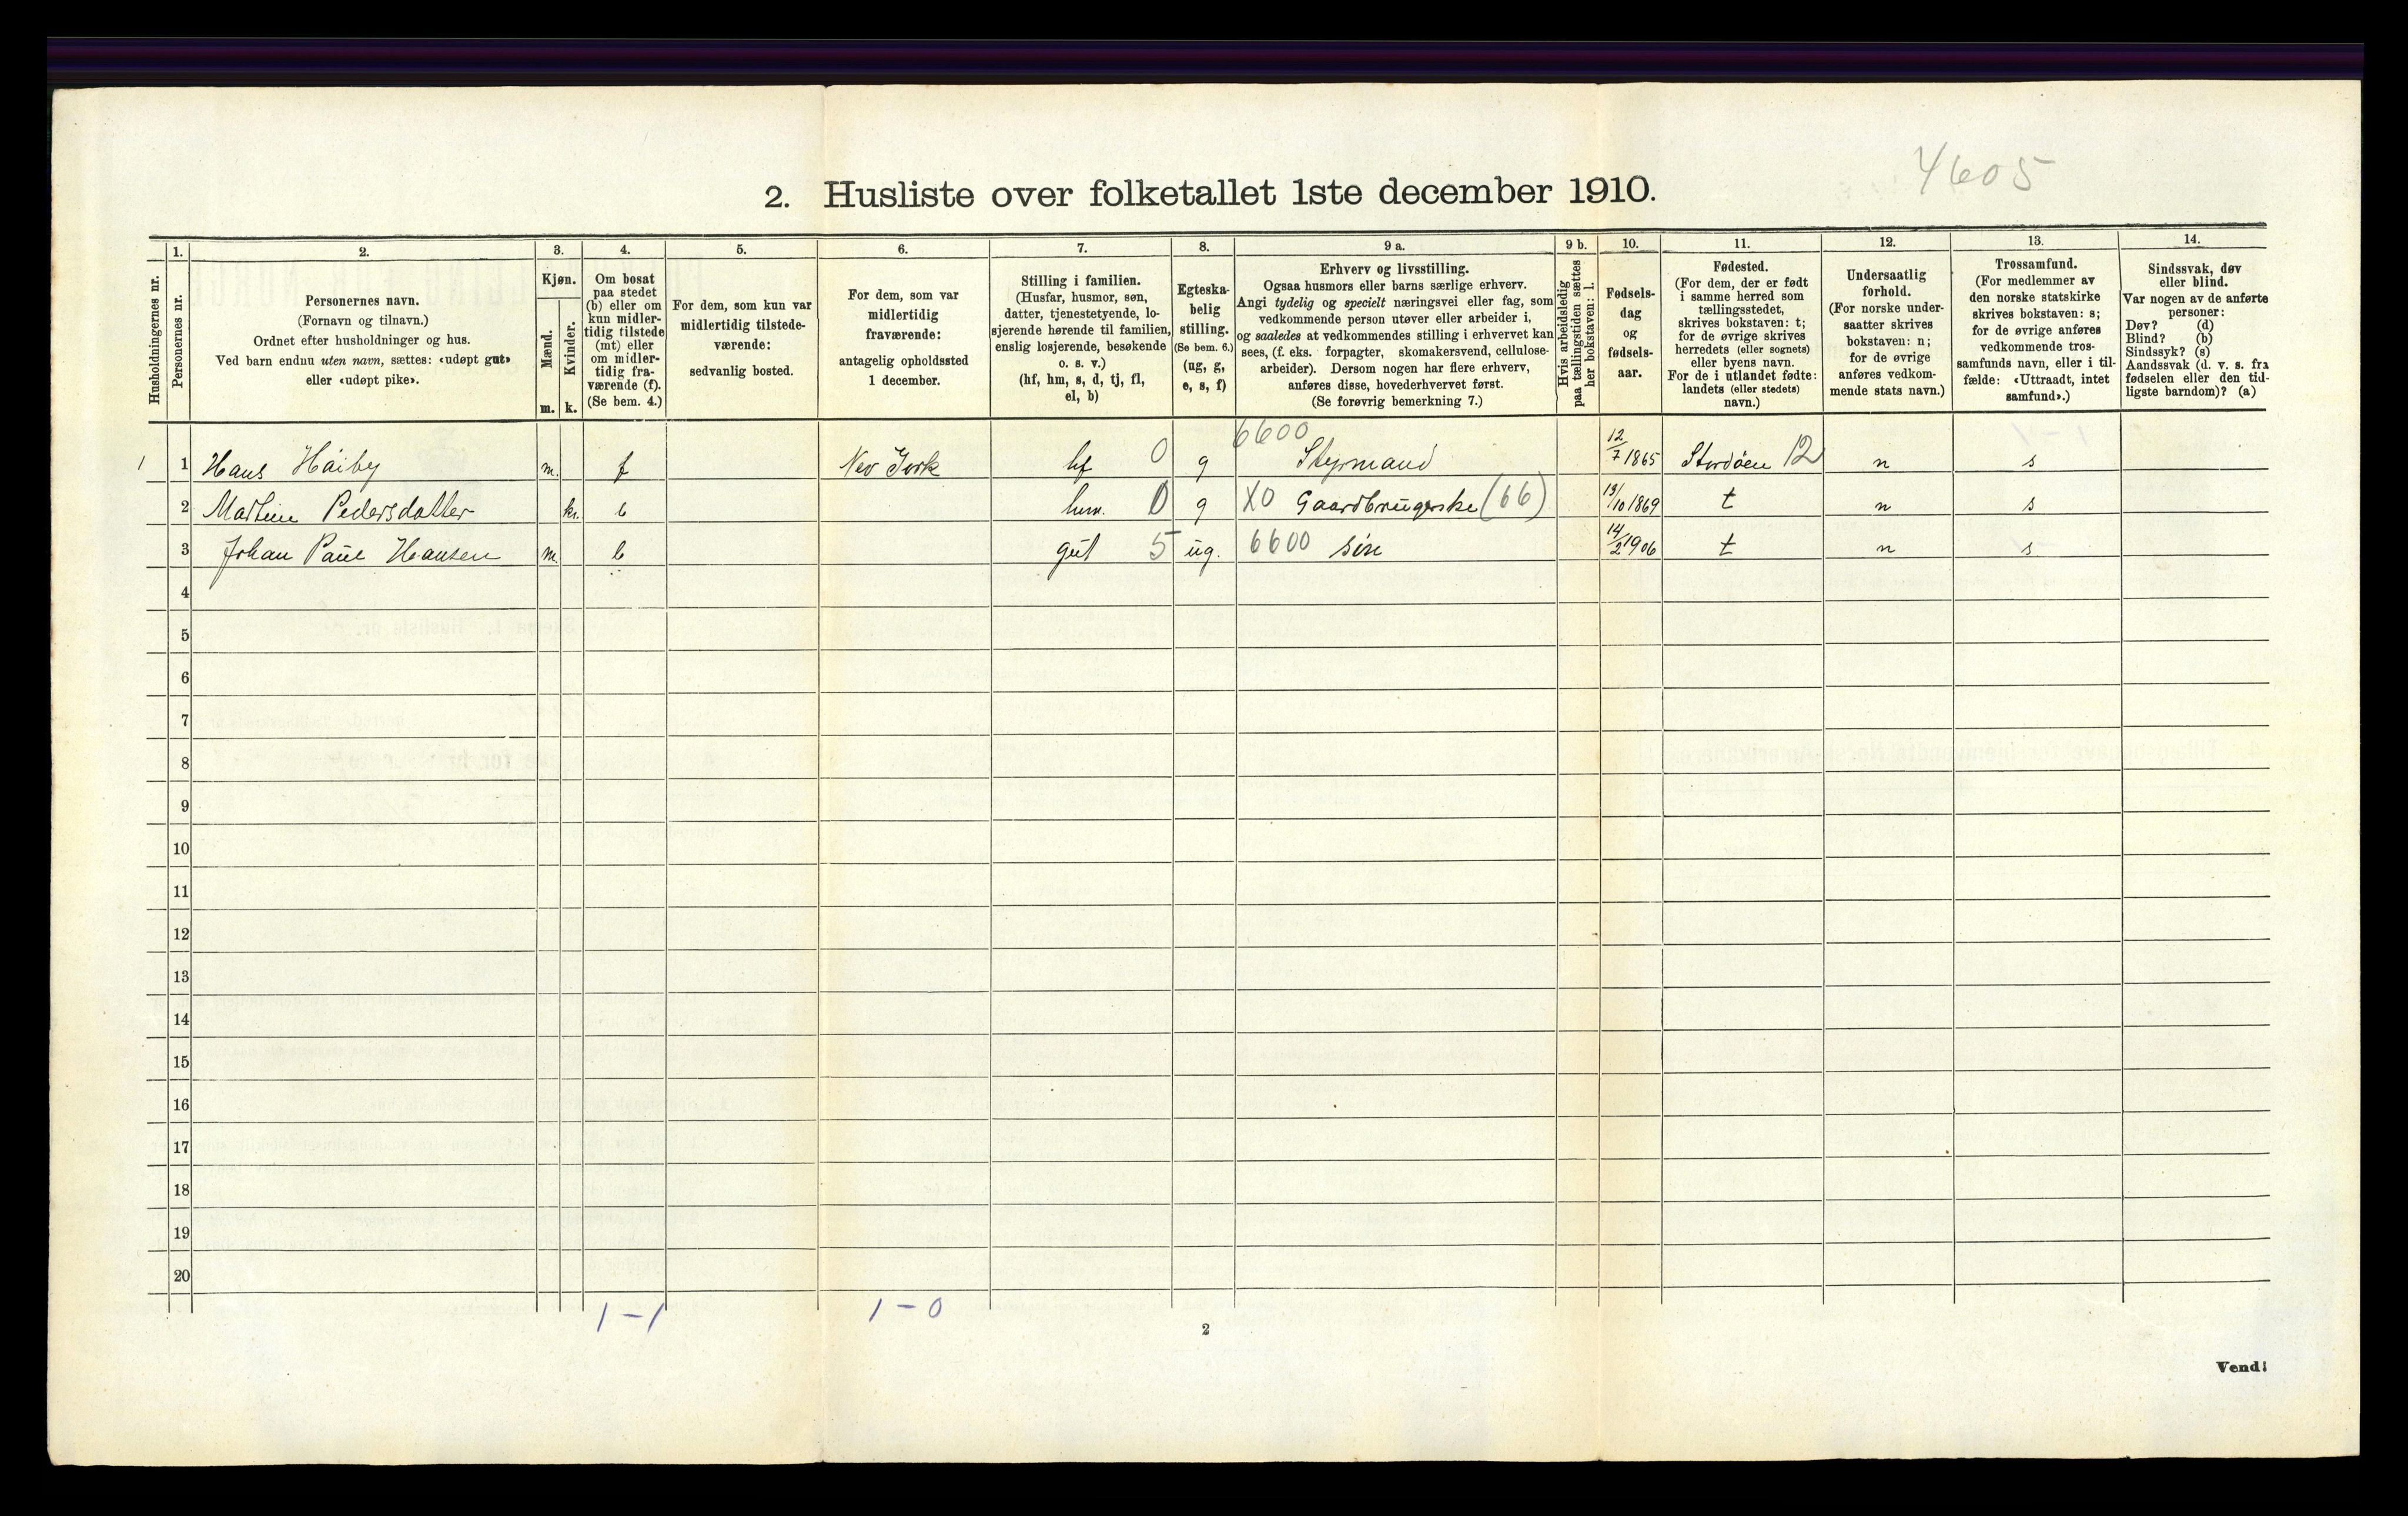 4605
2. Husliste over folketallet 1ste december 1910.
Husholdningernes nr.
1.
Personernes nr.
2.
Personernes navn.
(Fornavn og tilnavn.)
Ordnet efter husholdninger og hus.
Ved barn endnu uten navn, sættes: «udøpt gut»
eller «udøpt pike».
3.
Kjøn.
Mænd.
Kvinder.
m.
k.
4.
Om bosat
paa stedet
(b) eller om
kun midler-
tidig tilstede
(mt) eller
om midler-
tidig fra-
værende (f).
(Se bem. 4.)
5.
For dem, som kun var
midlertidig tilstede-
værende:
sedvanlig bosted.
6.
For dem, som var
midlertidig
fraværende:
antagelig opholdssted
1 december.
7.
Stilling i familien.
(Husfar, husmor, søn,
datter, tjenestetyende, lo-
sjerende hørende til familien,
enslig losjerende, besøkende
o. s. v.)
(hf, hm, s, d, tj, fl,
el, b)
8.
Egteska-
belig
stilling.
(Se bem. 6.)
(ug, g,
e, s, f)
9 a.
Erhverv og livsstilling.
Ogsaa husmors eller barns særlige erhverv.
Angi tydelig og specielt næringsvei eller fag, som
vedkommende person utøver eller arbeider i,
og saaledes at vedkommendes stilling i erhvervet kan
sees, (f. eks. forpagter, skomakersvend, cellulose-
arbeider). Dersom nogen har flere erhverv,
anføres disse, hovederhvervet først.
(Se forøvrig bemerkning 7.)
9 b.
Hvis arbeidsledig
paa tællingstiden sættes
her bokstaven: l.
10.
Fødsels-
dag
og
fødsels-
aar.
11.
Fødested.
(For dem, der er født
i samme herred som
tællingsstedet,
skrives bokstaven: t;
for de øvrige skrives
herredets (eller sognets)
eller byens navn.
For de i utlandet fødte:
landets (eller stedets)
navn.)
12.
Undersaatlig
forhold.
(For norske under-
saatter skrives
bokstaven: n;
for de øvrige
anføres vedkom-
mende stats navn.)
13.
Trossamfund.
(For medlemmer av
den norske statskirke
skrives bokstaven: s;
for de øvrige anføres
vedkommende tros-
samfunds navn, eller i til-
fælde: «Uttraadt, intet
samfund».)
14.
Sindssvak, døv
eller blind.
Var nogen av de anførte
personer:
Døv? (d)
Blind? (b)
Sindssyk? (s)
Aandssvak (d. v. s. fra
fødselen eller den tid-
ligste barndom)? (a)
1 1 Hans Haiby m. f New York hf 0 g 6600 Styrmand 12/7 1865 Stordøen 12 n s
2 Martine Pedersdatter k. b hm. 0 g X0 Gaardbrugerske (66) 13/10 1869 t n s
3 Johan Paul Hansen m. b gut 5 ug. 6600 søn 14/2 1906 t n s
4
5
6
7
8
9
10
11
12
13
14
15
16
17
18
19
20
1 – 1
1 – 0
2
Vend!